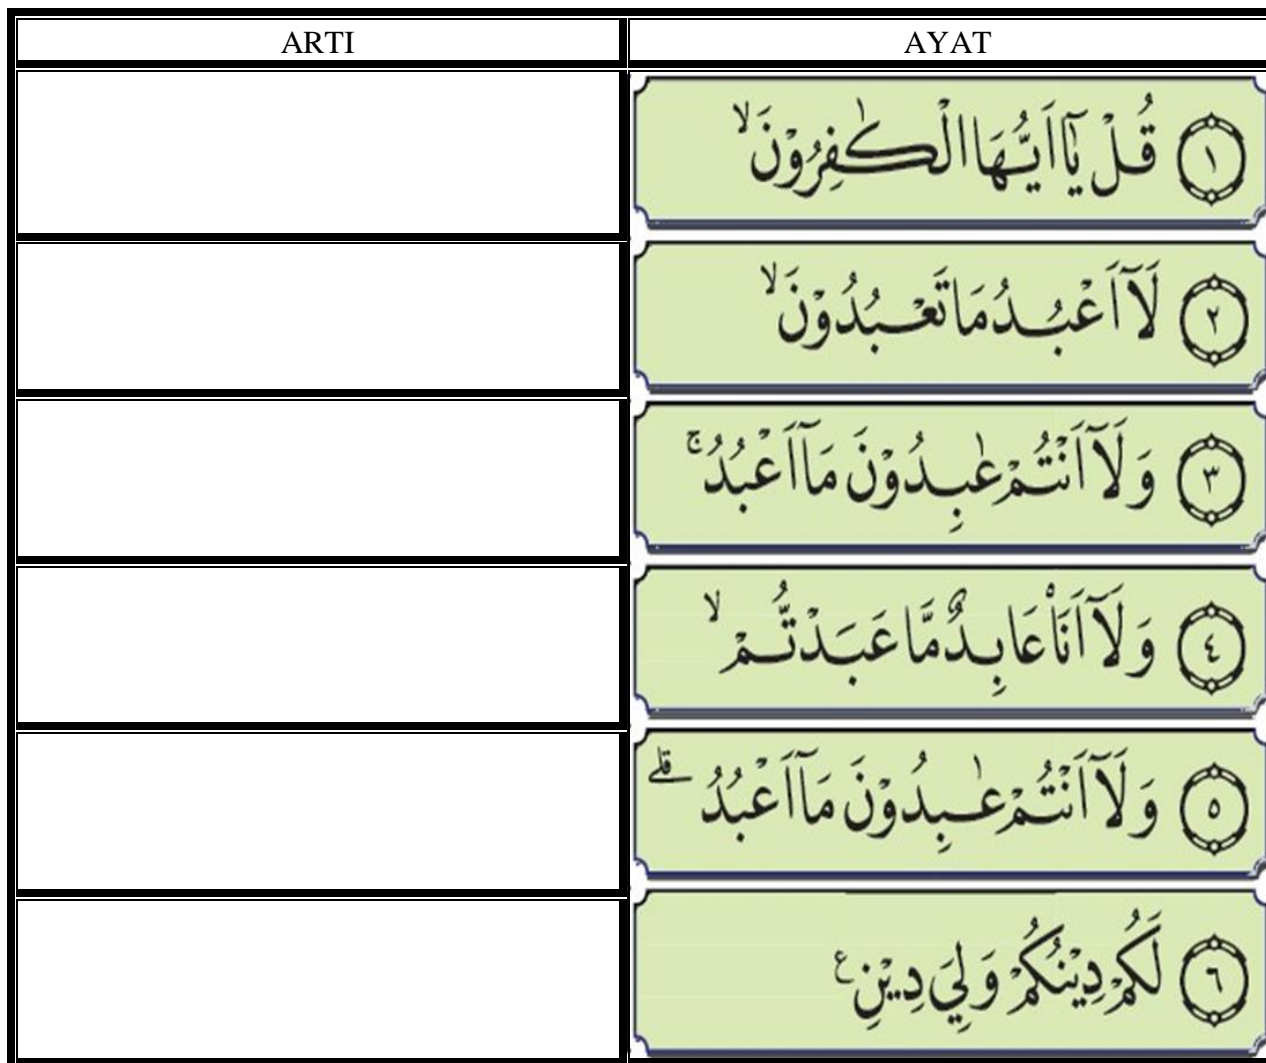 ARTI AYAT
١ قُلْ يٰٓاَيُّهَا الْكٰفِرُوْنَۙ
٢ لَآ اَعْبُدُ مَا تَعْبُدُوْنَۙ
٣ وَلَآ اَنْتُمْ عٰبِدُوْنَ مَآ اَعْبُدُۚ
٤ وَلَآ اَنَا۠ عَابِدٌ مَّا عَبَدْتُّمْۙ
٥ وَلَآ اَنْتُمْ عٰبِدُوْنَ مَآ اَعْبُدُۗ
٦ لَكُمْ دِيْنُكُمْ وَلِيَ دِيْنِ ع